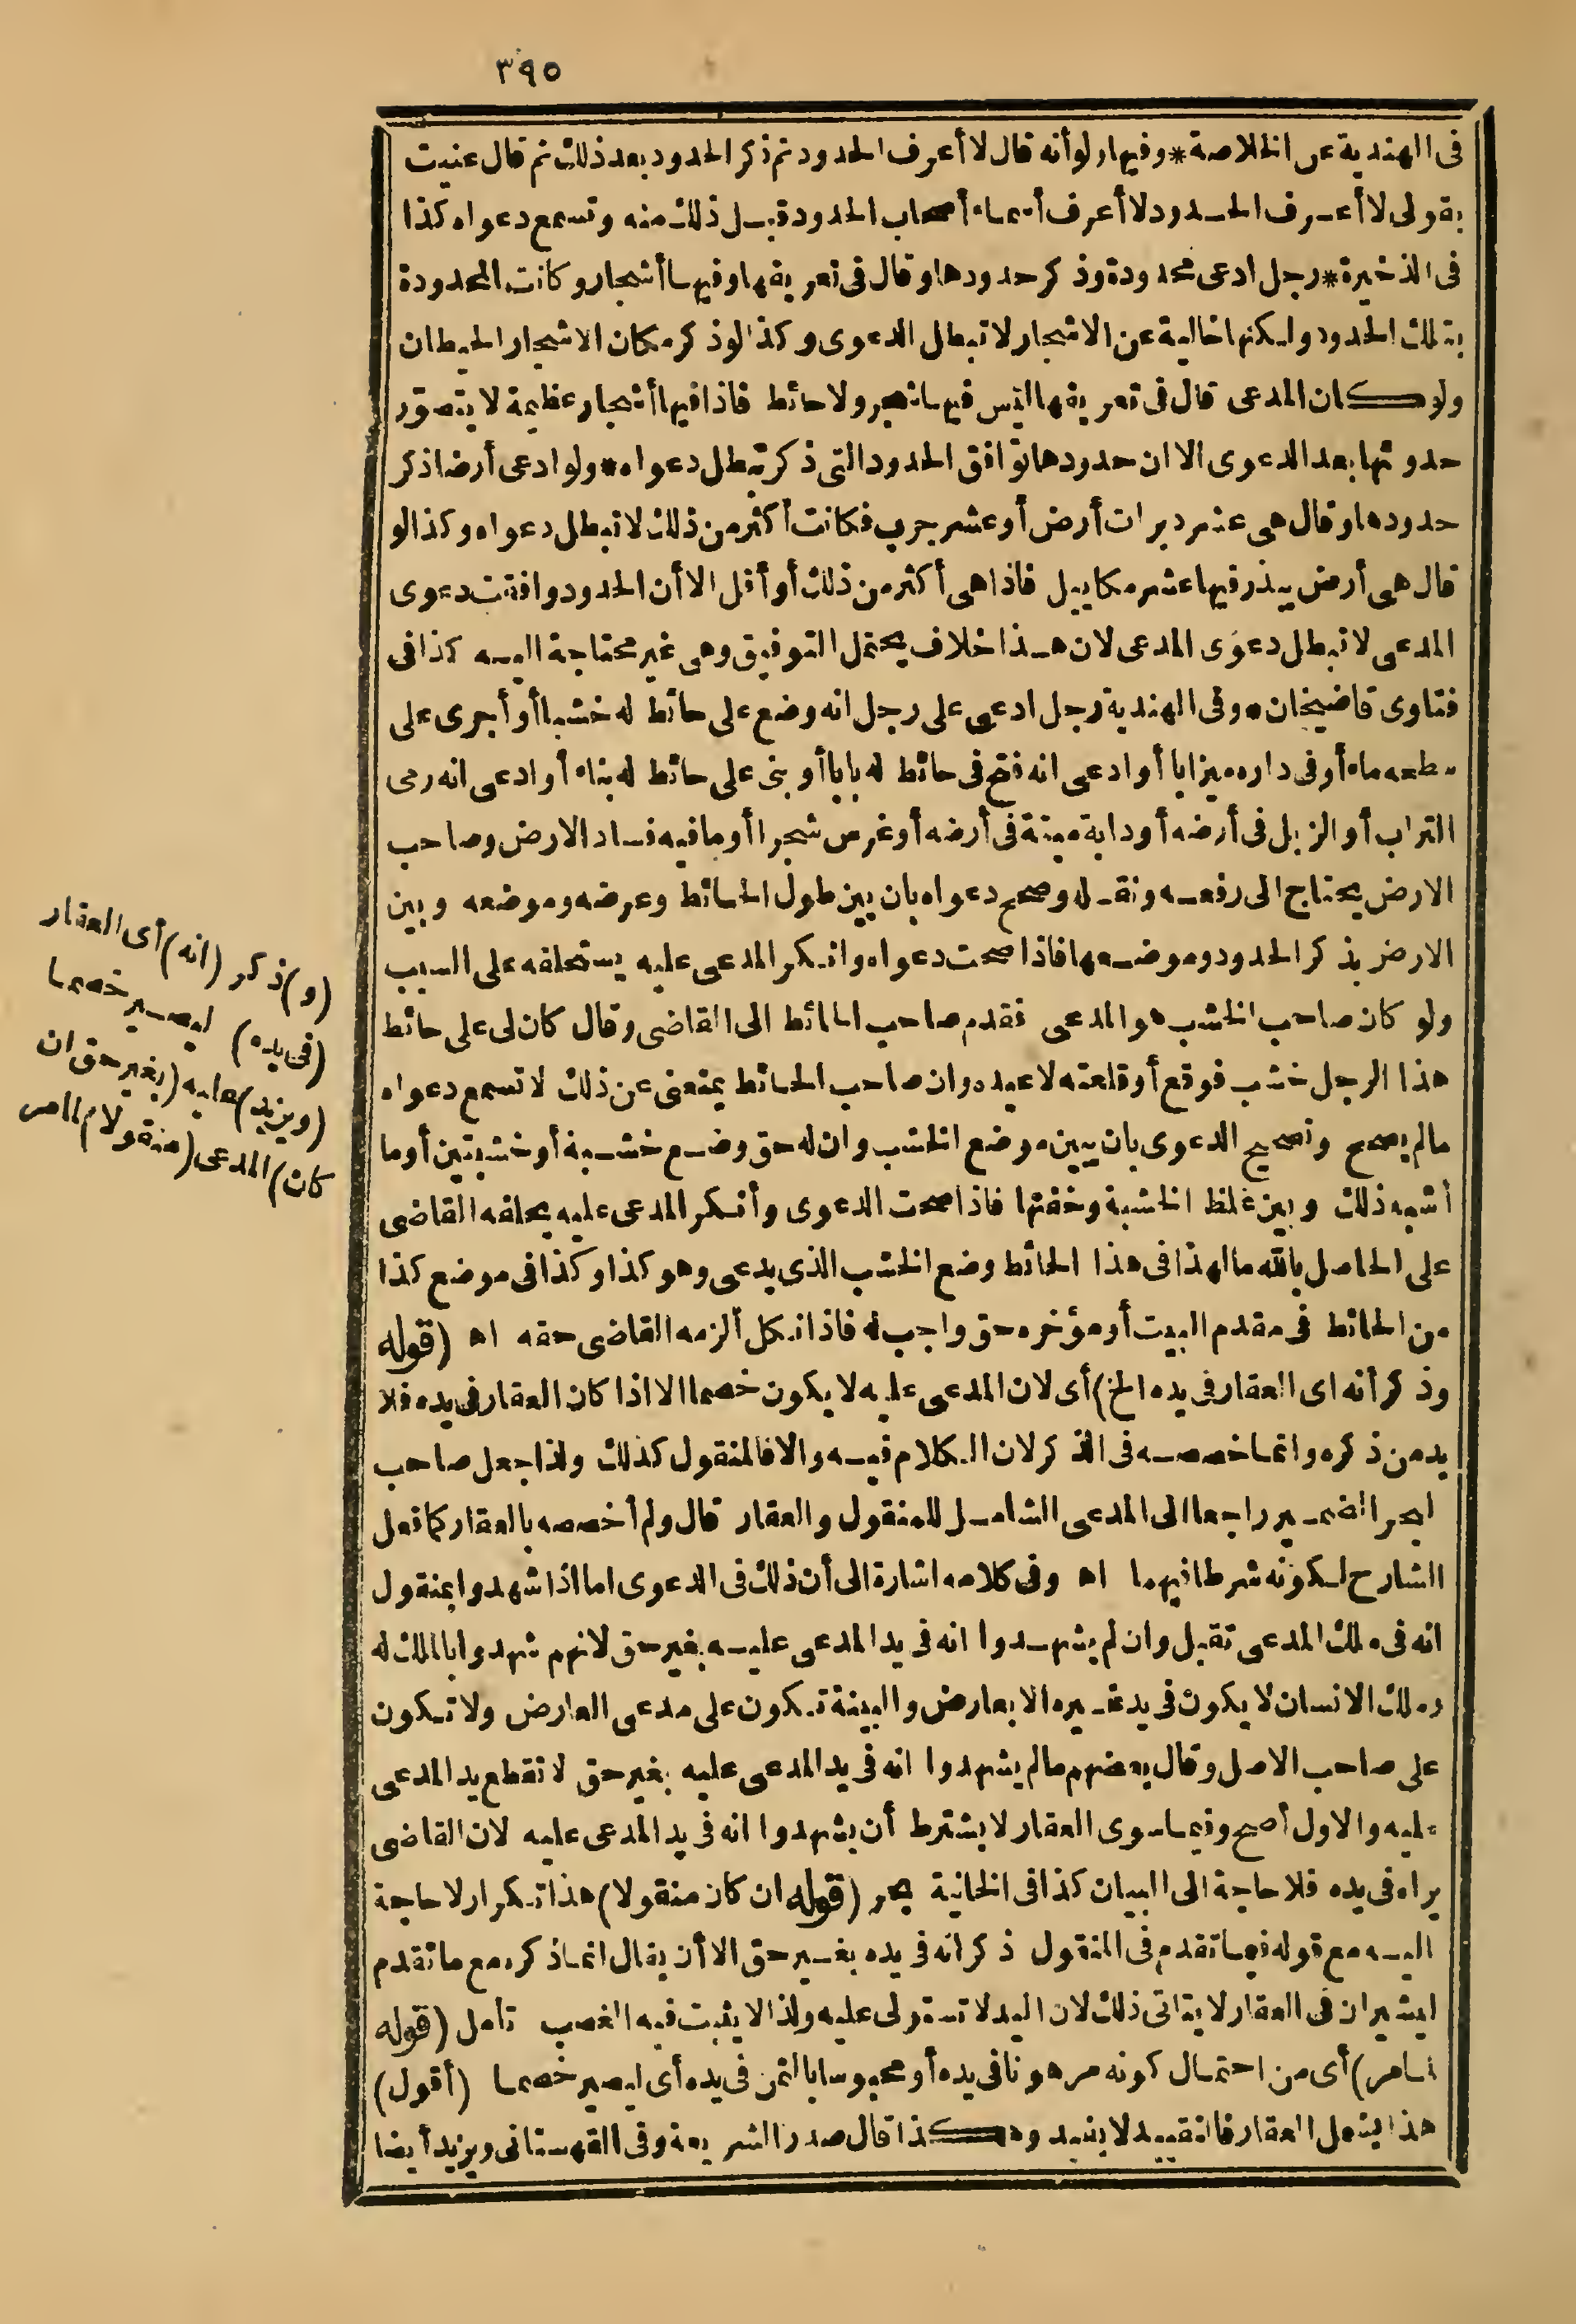 ٣٩٥
فى الهندية عن الخلاصة * وفيها ولو أنه قال لا أعرف الحدود ثم ذكر الحدود بعد ذلك ثم قال عنيت
بقولى لا أعرف الحدود لا أعرف أسماء أصحاب الحدود قبل ذلك منه وتسمع دعواه كذا
فى الذخيرة * رجل ادعى محدودة وذكر حدودها وقال فى تعريفها وفيها أشجار وكانت المحدودة
بتلك الحدود ولكنها خالية عن الاشجار لا تبطل الدعوى وكذا لو ذكر مكان الاشجار الحيطان
ولو كان المدعى قال فى تعريفها ليس فيها شجر ولا حائط فاذا فيها أشجار عظيمة لا يتصور
حدوثها بعد الدعوى الا ان حدودها توافق الحدود التى ذكر تبطل دعواه * ولو ادعى أرضا ذكر
حدودها وقال هى عشر دبرات أرض أو عشر جرب فكانت أكثر من ذلك لا تبطل دعواه وكذا لو
قال هى أرض يبذر فيها عشر مكاييل فاذا هى أكثر من ذلك أو أقل الا أن الحدود وافقت دعوى
المدعى لا تبطل دعوى المدعى لان هذا خلاف يحتمل التوفيق وهى غير محتاجة اليه كذا فى
فتاوى قاضيخان * وفى الهندية رجل ادعى على رجل انه وضع على حائط له خشبا أو أجرى على
سطحه ماء أو فى داره ميزابا أو ادعى انه فتح فى حائط له بابا أو بنى على حائط له بناء أو ادعى انه رمى
التراب أو الزبل فى أرضه أو دابة ميتة فى أرضه أو غرس شجرا أو ما فيه فساد الارض وصاحب
الارض يحتاج الى رفعه ونقله وصحح دعواه بان بين طول الحائط وعرضه وموضعه وبين
الارض بذكر الحدود وموضعها فاذا صحت دعواه وانكر المدعى عليه يستحلفه على السبب
ولو كان صاحب الخشب هو المدعى فقدم صاحب الحائط الى القاضى وقال كان لى على حائط
هذا الرجل خشب فوقع أو قلعته لاعيده وان صاحب الحائط يمنعنى عن ذلك لا تسمع دعواه
مالم يصحح وتصحيح الدعوى بان يبين موضع الخشب وان له حق وضع خشبة أو خشبتين أو ما
أشبه ذلك وبين غلظ الخشبة وخفتها فاذا صحت الدعوى وأنكر المدعى عليه يحلفه القاضى
على الحاصل بالله ما لهذا فى هذا الحائط وضع الخشب الذى يدعى وهو كذا وكذا فى موضع كذا
من الحائط فى مقدم البيت أو مؤخره حق واجب له فاذا نكل ألزمه القاضى حقه اه (قوله
وذكر أنه اى العقار فى يده الخ) أى لان المدعى عليه لا يكون خصما الا اذا كان العقار فى يده فلا
بد من ذكره وانما خصصه فى الذكر لان الكلام فيه والا فالمنقول كذلك ولذا جعل صاحب
البحر الضمير راجعا الى المدعى الشامل للمنقول والعقار قال ولم أخصصه بالعقار كما فعل
الشارح لكونه شرطا فيهما اه وفى كلامه اشارة الى أن ذلك فى الدعوى اما اذا شهدوا بمنقول
انه فى ملك المدعى تقبل وان لم يشهدوا انه فى يد المدعى عليه بغير حق لانهم شهدوا بالملك له
وملك الانسان لا يكون فى يد غيره الا بعارض والبينة تكون على مدعى العارض ولا تكون
على صاحب الاصل وقال بعضهم مالم يشهدوا انه فى يد المدعى عليه بغير حق لا تقطع يد المدعى
عليه والاول أصح وفيما سوى العقار لا يشترط أن يشهدوا انه فى يد المدعى عليه لان القاضى
يراه فى يده فلا حاجة الى البيان كذا فى الخانية بحر (قوله ان كان منقولا) هذا تكرار لا حاجة
اليه مع قوله فيما تقدم فى المنقول ذكر انه فى يده بغير حق الا أن يقال انما ذكره مع ما تقدم
ليشير ان فى العقار لا يتاتى ذلك لان اليد لا تستولى عليه ولذا لا يثبت فيه الغصب تأمل (قوله
لما مر) أى من احتمال كونه مرهونا فى يده أو محبوسا بالثمن فى يده أى ليصير خصما (أقول)
هذا يشمل العقار فالتقييد لا يفيد وهكذا قال صدر الشريعة وفى القهستانى ويزيد أيضا
(و) ذكر (انه) أى العقار
(فى يده) ليصير خصما
(ويزيد) عليه (بغير حق ان
كان) المدعى (منقولا) لما مر